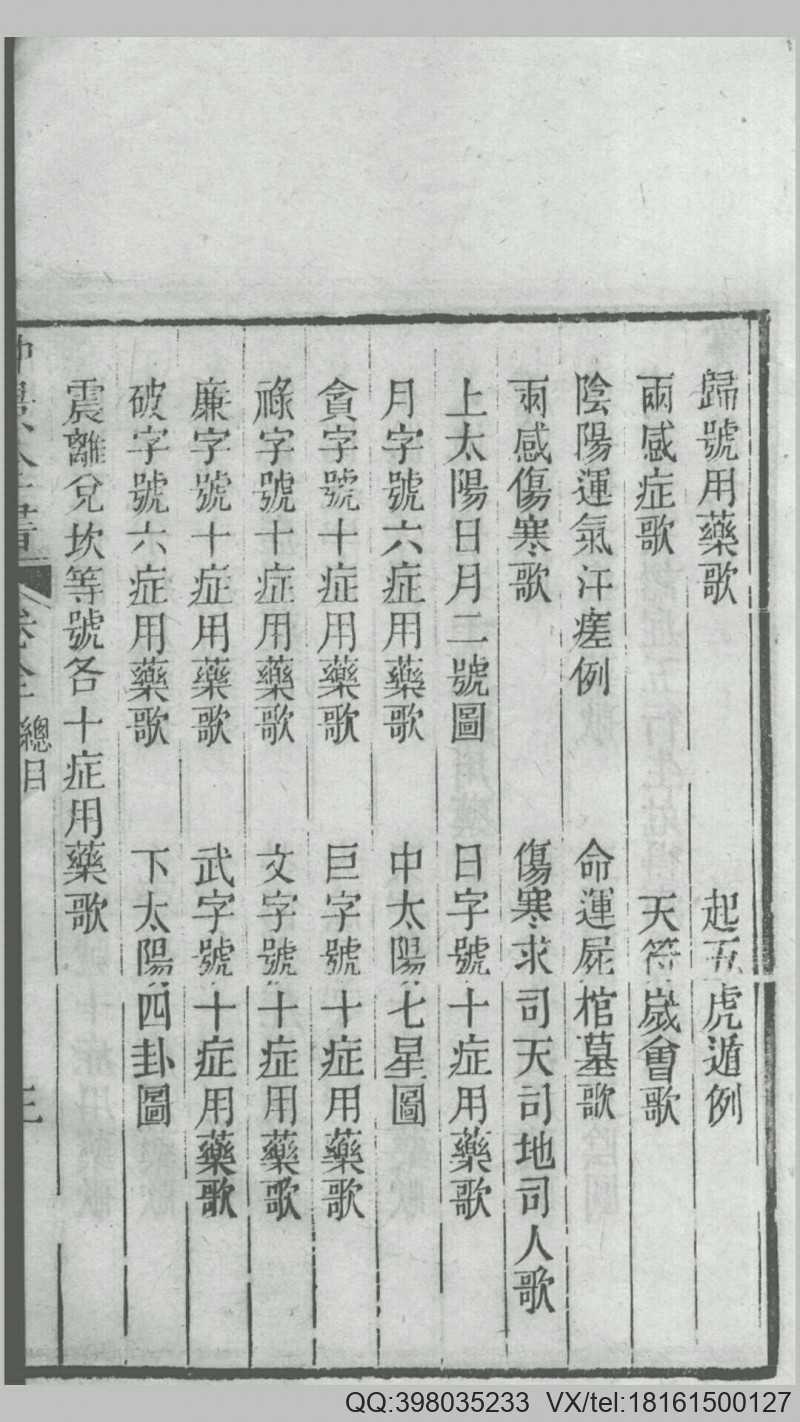 歸號用藥歌　起五虎遁例
兩感症歌　天符歲會歌
陰陽運氣汗瘥例　命運屍棺墓歌
兩感傷寒歌　傷寒求司天司地司人歌
上太陽日月二號圖　日字號十症用藥歌
月字號六症用藥歌　中太陽七星圖
貪字號十症用藥歌　巨字號十症用藥歌
祿字號十症用藥歌　文字號十症用藥歌
廉字號十症用藥歌　武字號十症用藥歌
破字號六症用藥歌　下太陽四卦圖
震離兌坎等號各十症用藥歌
總目
QQ:398035233 VX/tel:18161500127